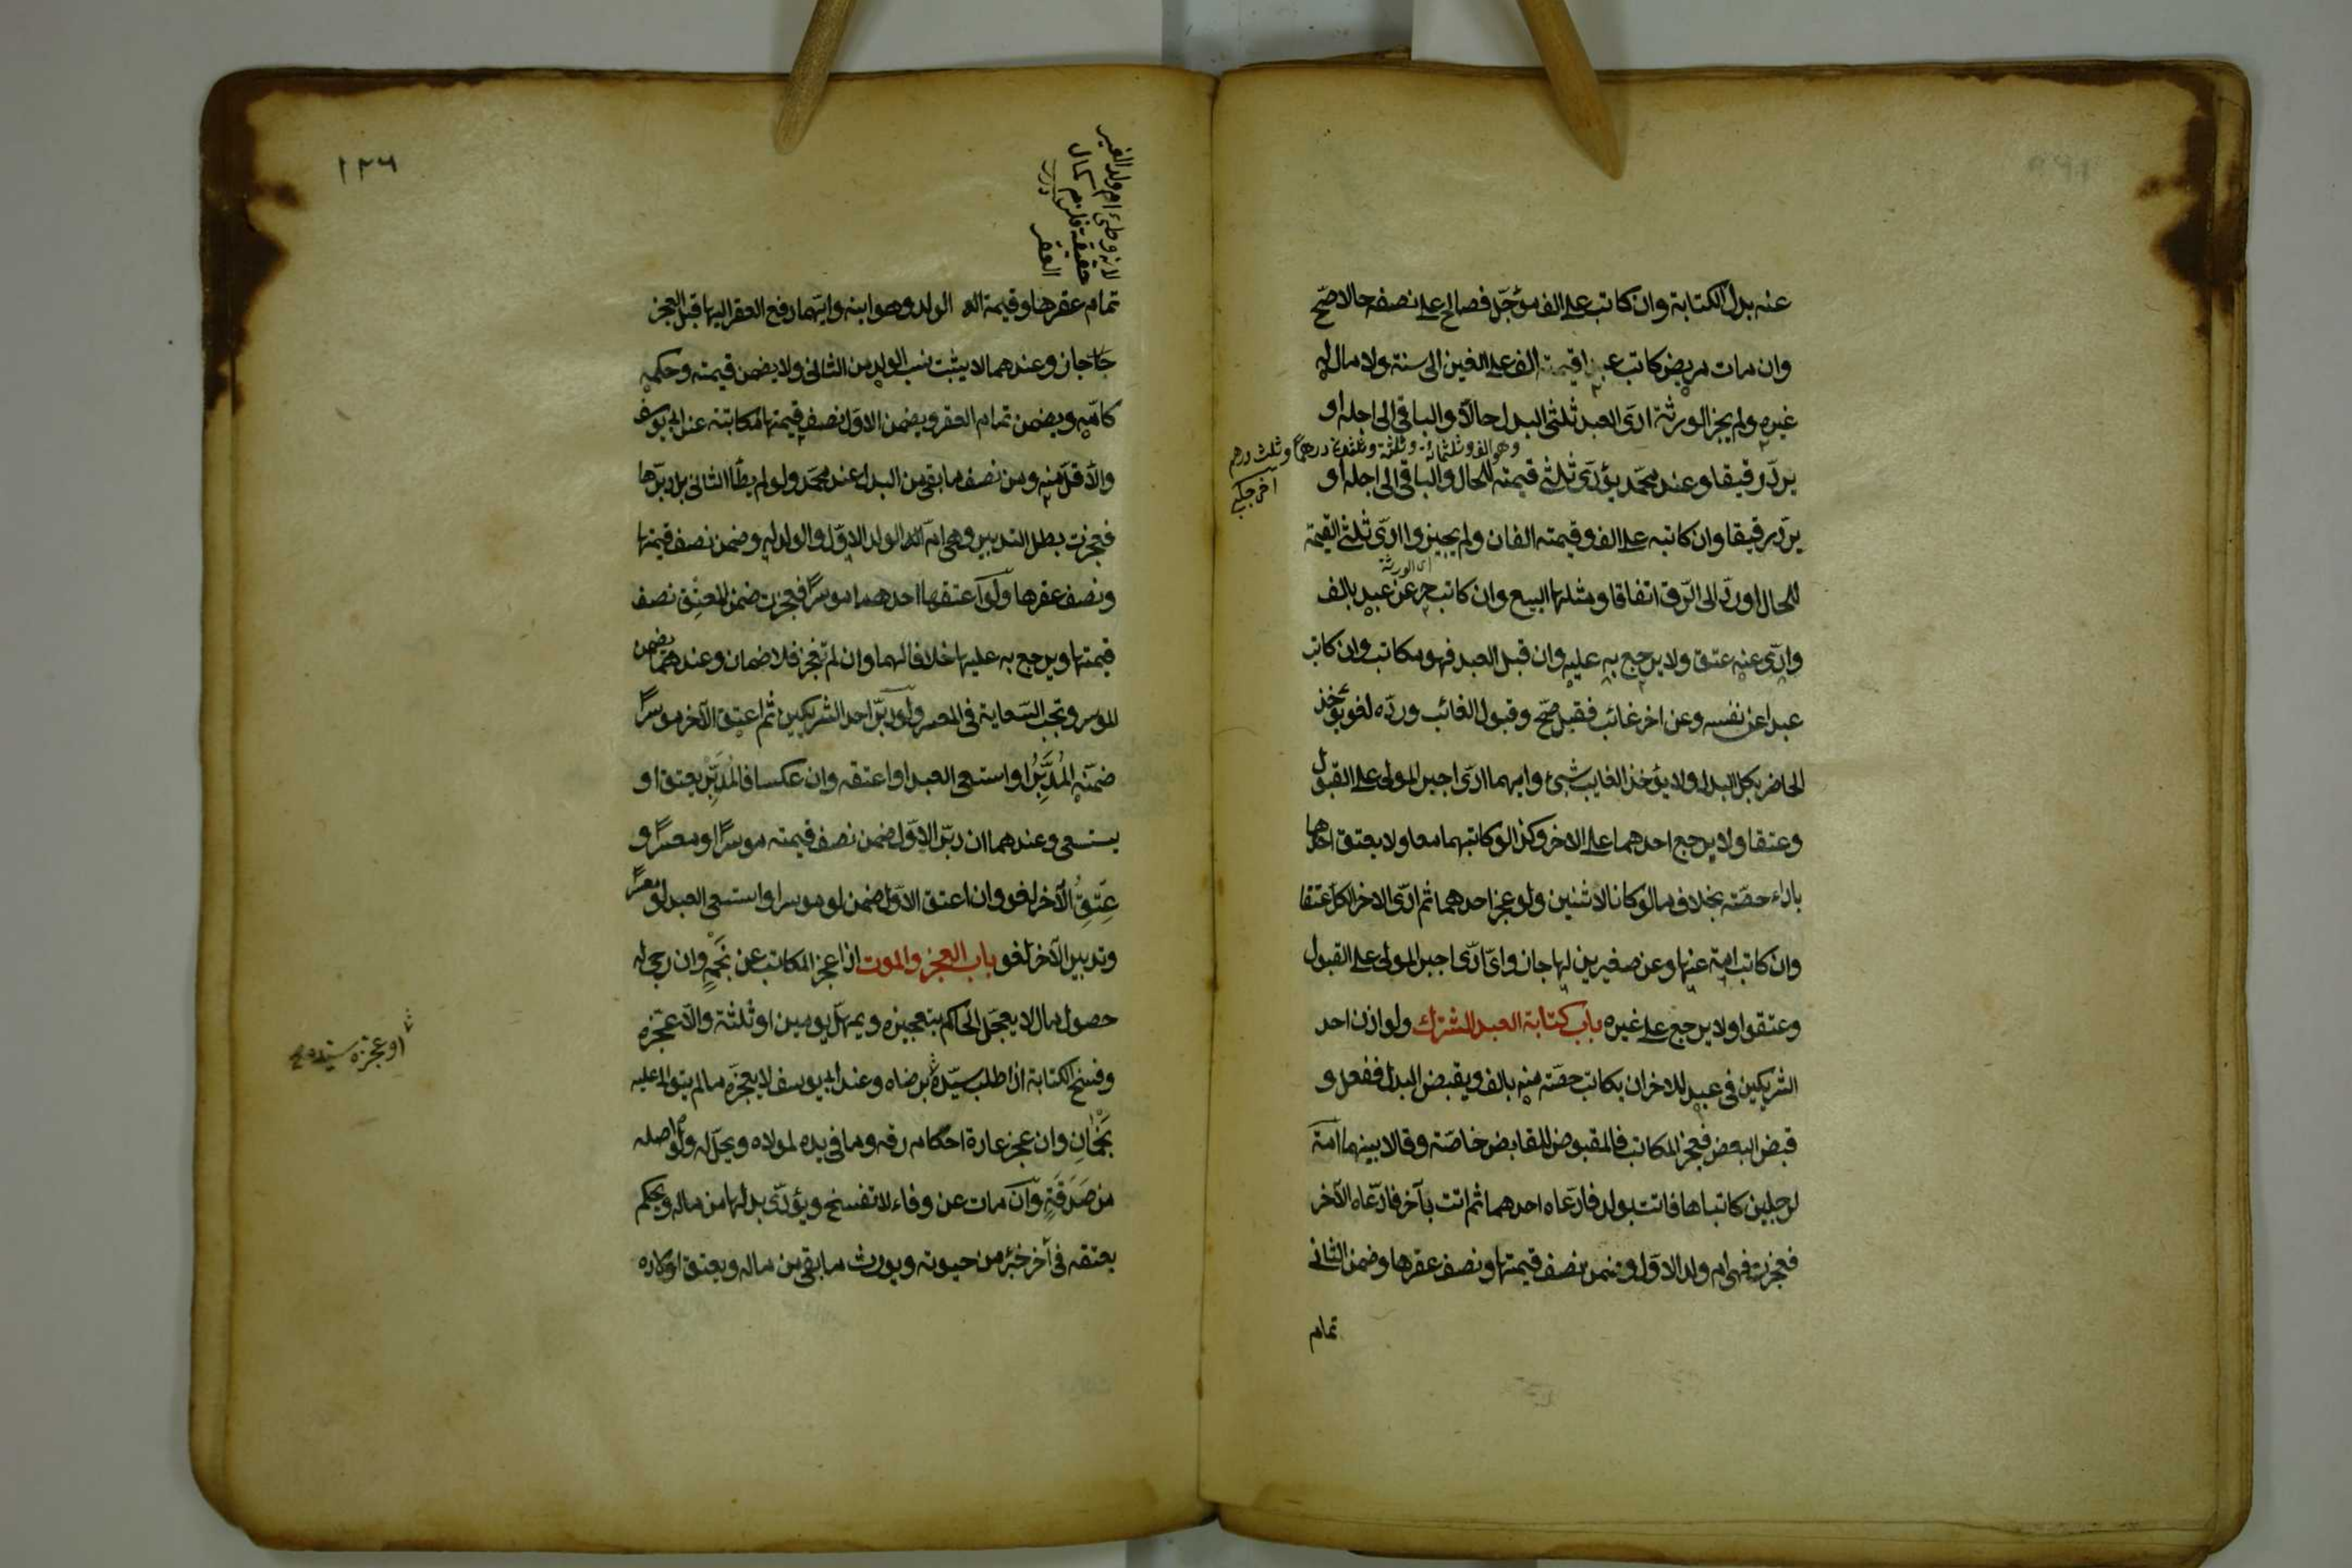 عنه بدل الكتابة وان كاتب على الف مؤجّل فصالح على نصفه حالا صّح
وان مات مريض كاتب عبدا قيمته الف على الفين الى سنة ولا مال له
غيره ولم يجز الورثة ادّى العبد ثلثى البدل حالّا والباقى الى اجله او
وهو الف وثلثمائة وثلثة وثلثون درهمًا وثلث درهم
يردّ رقيقا وعند محمّد يؤدّى ثلثى قيمته للحال والباقى الى اجله او
يردّ رقيقا وان كاتبه على الف وقيمته الفان ولم يجيزوا ادّى ثلثى القيمة
اى الورثة
للحال او ردّ الى الرّق اتفاقا ومثلها البيع وان كاتب حر عن عبد بالف
وادّى عنه عتق ولا يرجع به عليه وان قبل العبد فهو مكاتب وان كاتب
عبدا عن نفسه وعن اخر غائب فقبل صّح وقبول الغائب وردّه لغو يؤخذ
الحاضر بكل البدل ولا يؤخذ الغايب بشئ وايهما ادّى اجبر المولى على القبول
وعتقا ولا يرجع احدهما على الاخر وكذا لو كاتبهما معا ولا يعتق احدهما
باداء حصّته بخلاف ما لو كانا لاثنين ولو عجز احدهما ثم ادّى الاخر الكل عتقا
وان كاتب امة عنها وعن صغيرين لها جاز واىّ ادّى اجبر المولى على القبول
وعتقوا ولا يرجع على غيره باب كتابة العبد المشترك ولو اذن احد
الشريكين فى عبد للاخر ان يكاتب حصّته منه بالف ويقبض البدل ففعل و
قبض البعض فعجز المكاتب فالمقبوض للقابض خاصّة وقالا بينهما امة
لرجلين كاتباها فاتت بولد فادّعاه احدهما ثم اتت بآخر فادّعاه الآخر
فعجزت فهى ام ولد الاوّل وضمن نصف قيمتها ونصف عقرها وضمن الثانى
تمام
١٢٦
لانه وطئ ام ولد الغير
حقيقة فلزم كمال
العقر درر
تمام عقرها وقيمة الولد وهو ابنه وايّهما دفع العقر اليها قبل العجز
جاز وعندهما لا يثبت نسب الولد من الثانى ولا يضمن قيمته وحكمه
كامّه ويضمن تمام العقر ويضمن الاوّل نصف قيمتها مكاتبة عند ابى يوسف
والاقلّ منه ومن نصف ما بقى من البدل عند محمّد ولو لم يطأ الثانى بل دبّرها
فعجزت بطل التدبير وهى امّ ولد الاوّل والولد له وضمن نصف قيمتها
ونصف عقرها ولو اعتقها احدهما موسرًا فعجزت ضمن المعتِق نصف
قيمتها ويرجع به عليها خلافا لهما وان لم تعجز فلا ضمان وعندهما يضمن
الموسر وتجب السّعاية فى المعسر ولو دبّر احد الشريكين ثم اعتق الآخر موسرًا
ضمّنه المُدَبِّرُ او استسعى العبد او اعتقه وان عكسا فالمُدَبِّرُ يعتق او
يستسعى وعندهما ان دبّر الاوّل ضمن نصف قيمته موسرًا او معسرًا و
عِتقُ الآخر لغو وان اعتق الاوّل ضمن لو موسرا واستسعى العبد لو معسرًا
وتدبير الآخر لغو باب العجز والموت اذا عجز المكاتب عن نَجْمٍ وان رجى له
حصول مال لا يعجّل الحاكم بتعجيزه ويمهل يومين او ثلثة والّا عجّزه
وفسخ الكتابة ان طلب سيّدة برضاه وعند ابى يوسف لا يعجزّه ما لم يتوال عليه
نَجْمَانِ وان عجز عادة احكام رقه وما فى يده لمولاه ويحلّ له ولو اصله
من صَدَقَةٍ وان مات عن وفاء لا تفسخ ويؤدّى بدلها من ماله ويحكم
بعتقه فى آخر جزء من حيوته ويورث ما بقى من ماله ويعتق اولاده
او عجزه سيده